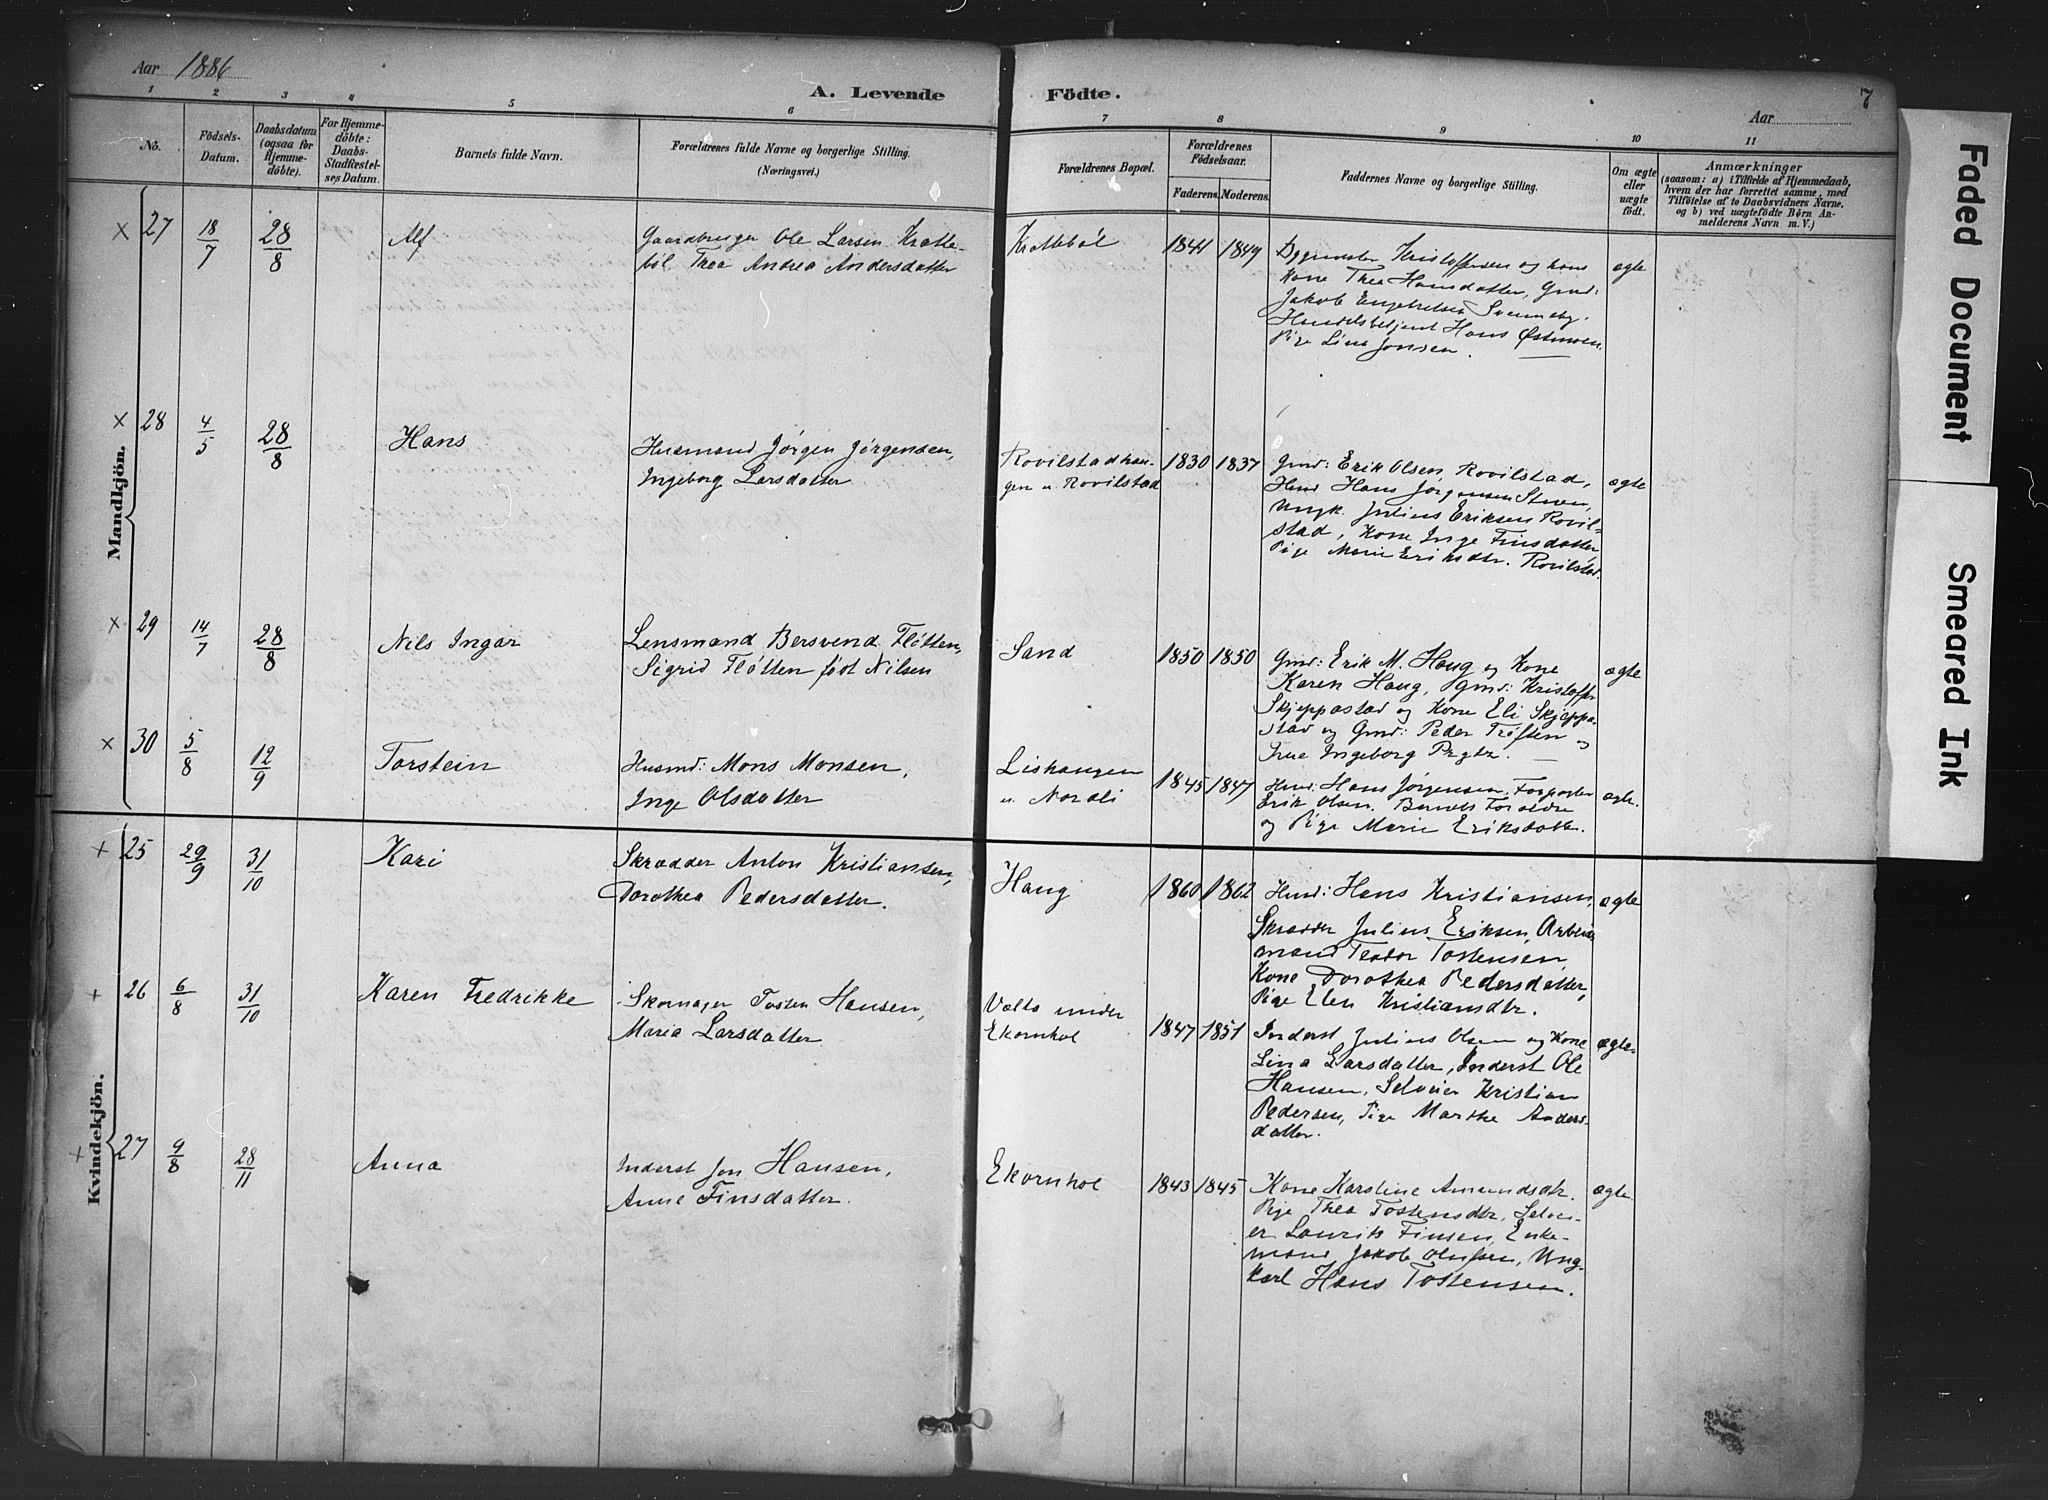 Aar 1886
A. Levende Födte.
Aar
7
1 2 3 4 5 6 7 8 9 10 11
No.
Födsels-Datum.
Daabsdatum (ogsaa for Hjemmedöbte).
For Hjemmedöbte: Daabs-Stadfæstelses Datum.
Barnets fulde Navn.
Forældrenes fulde Navne og borgerlige Stilling.
(Næringsvei.)
Forældrenes Bopæl.
Forældrenes Födselsaar.
Faderens. Moderens.
Faddernes Navne og borgerlige Stilling.
Om ægte eller uægte födt.
Anmærkninger
(saasom: a) i Tilfælde af Hjemmedaab, hvem der har forrettet samme, med Tilföielse af to Daabsvidners Navne, og b) ved uægtefödte Børn Anmelderens Navn m. V.)
Mandkjön.
× 27 18/7 28/8 Alf
Gaardbruger Ole Larsen Krattebøl, Thea Andrea Andersdatter
Krattebøl 1841 1849
Kristoffersen og hans
Kone Thea Hansdatter, Gmd:
Jakob Engebretsen Svenneby.
Handelsbetjent Hans Østmoen.
Pige Lina Jonsen.
ægte
× 28 4/5 28/8 Hans
Husmand Jørgen Jørgensen,
Ingeborg Larsdatter
Rovilstadhaugen u. Rovilstad 1830 1837
Gmd: Erik Olsen, Rovilstad,
Hmd Hans Jørgensen Stuen,
Ungk. Julius Eriksen Rovilstad, Kone Inge Finsdatter,
Pige Marie Eriksdtr. Rovilstad.
ægte
× 29 14/7 28/8 Nils Ingar
Lensmand Bersvend Fløtten,
Sigrid Fløtten født Nilsen
Sand 1850 1850
Gmd: Erik M. Haug og Kone
Karen Haug, Gmd: Kristoffer
Skjeppestad og Kone Eli Skjeppestad og Gmd: Peder Trøften og
Frue Ingeborg
ægte
× 30 5/8 12/9 Torstein
Husmd: Mons Monsen,
Inge Olsdatter
Lishaugen u. Nordli 1845 1847
Hmd: Hans Jørgensen, Forpagter
Erik Olsen, Barnets Forældre
og Pige Marie Eriksdatter.
ægte.
Kvindekjön.
+ 25 29/9 31/10 Kari
Skrædder Anton Kristiansen,
Dorothea Pedersdatter.
Haug 1860 1862
Hmd: Hans Kristiansen,
Skrædder Julius Eriksen, Arbeidsmand Teodor Tostensen,
Kone Dorothea Pedersdatter,
Pige Elen Kristiansdtr.
ægte
+ 26 6/8 31/10 Karen Fredrikke
Skomager Tosten Hansen,
Maria Larsdatter
under Ekornhol 1847 1851
Inderst Julius Olsen og Kone
Lina Larsdatter, Inderst Ole
Hansen, Selveier Kristian
Pedersen, Pige Marthe Andersdatter.
ægte
+ 27 9/8 28/11 Anna
Inderst Jon Hansen,
Anne Finsdatter.
Ekornhol 1843 1845
Kone Karstine Amundsdtr.
Pige Thea Tostensdtr, Selveier Laurits Finsen, Enkemand Jakob Olufsen, Ungkarl Hans Tostensen.
ægte
Faded Document
Smeared Ink